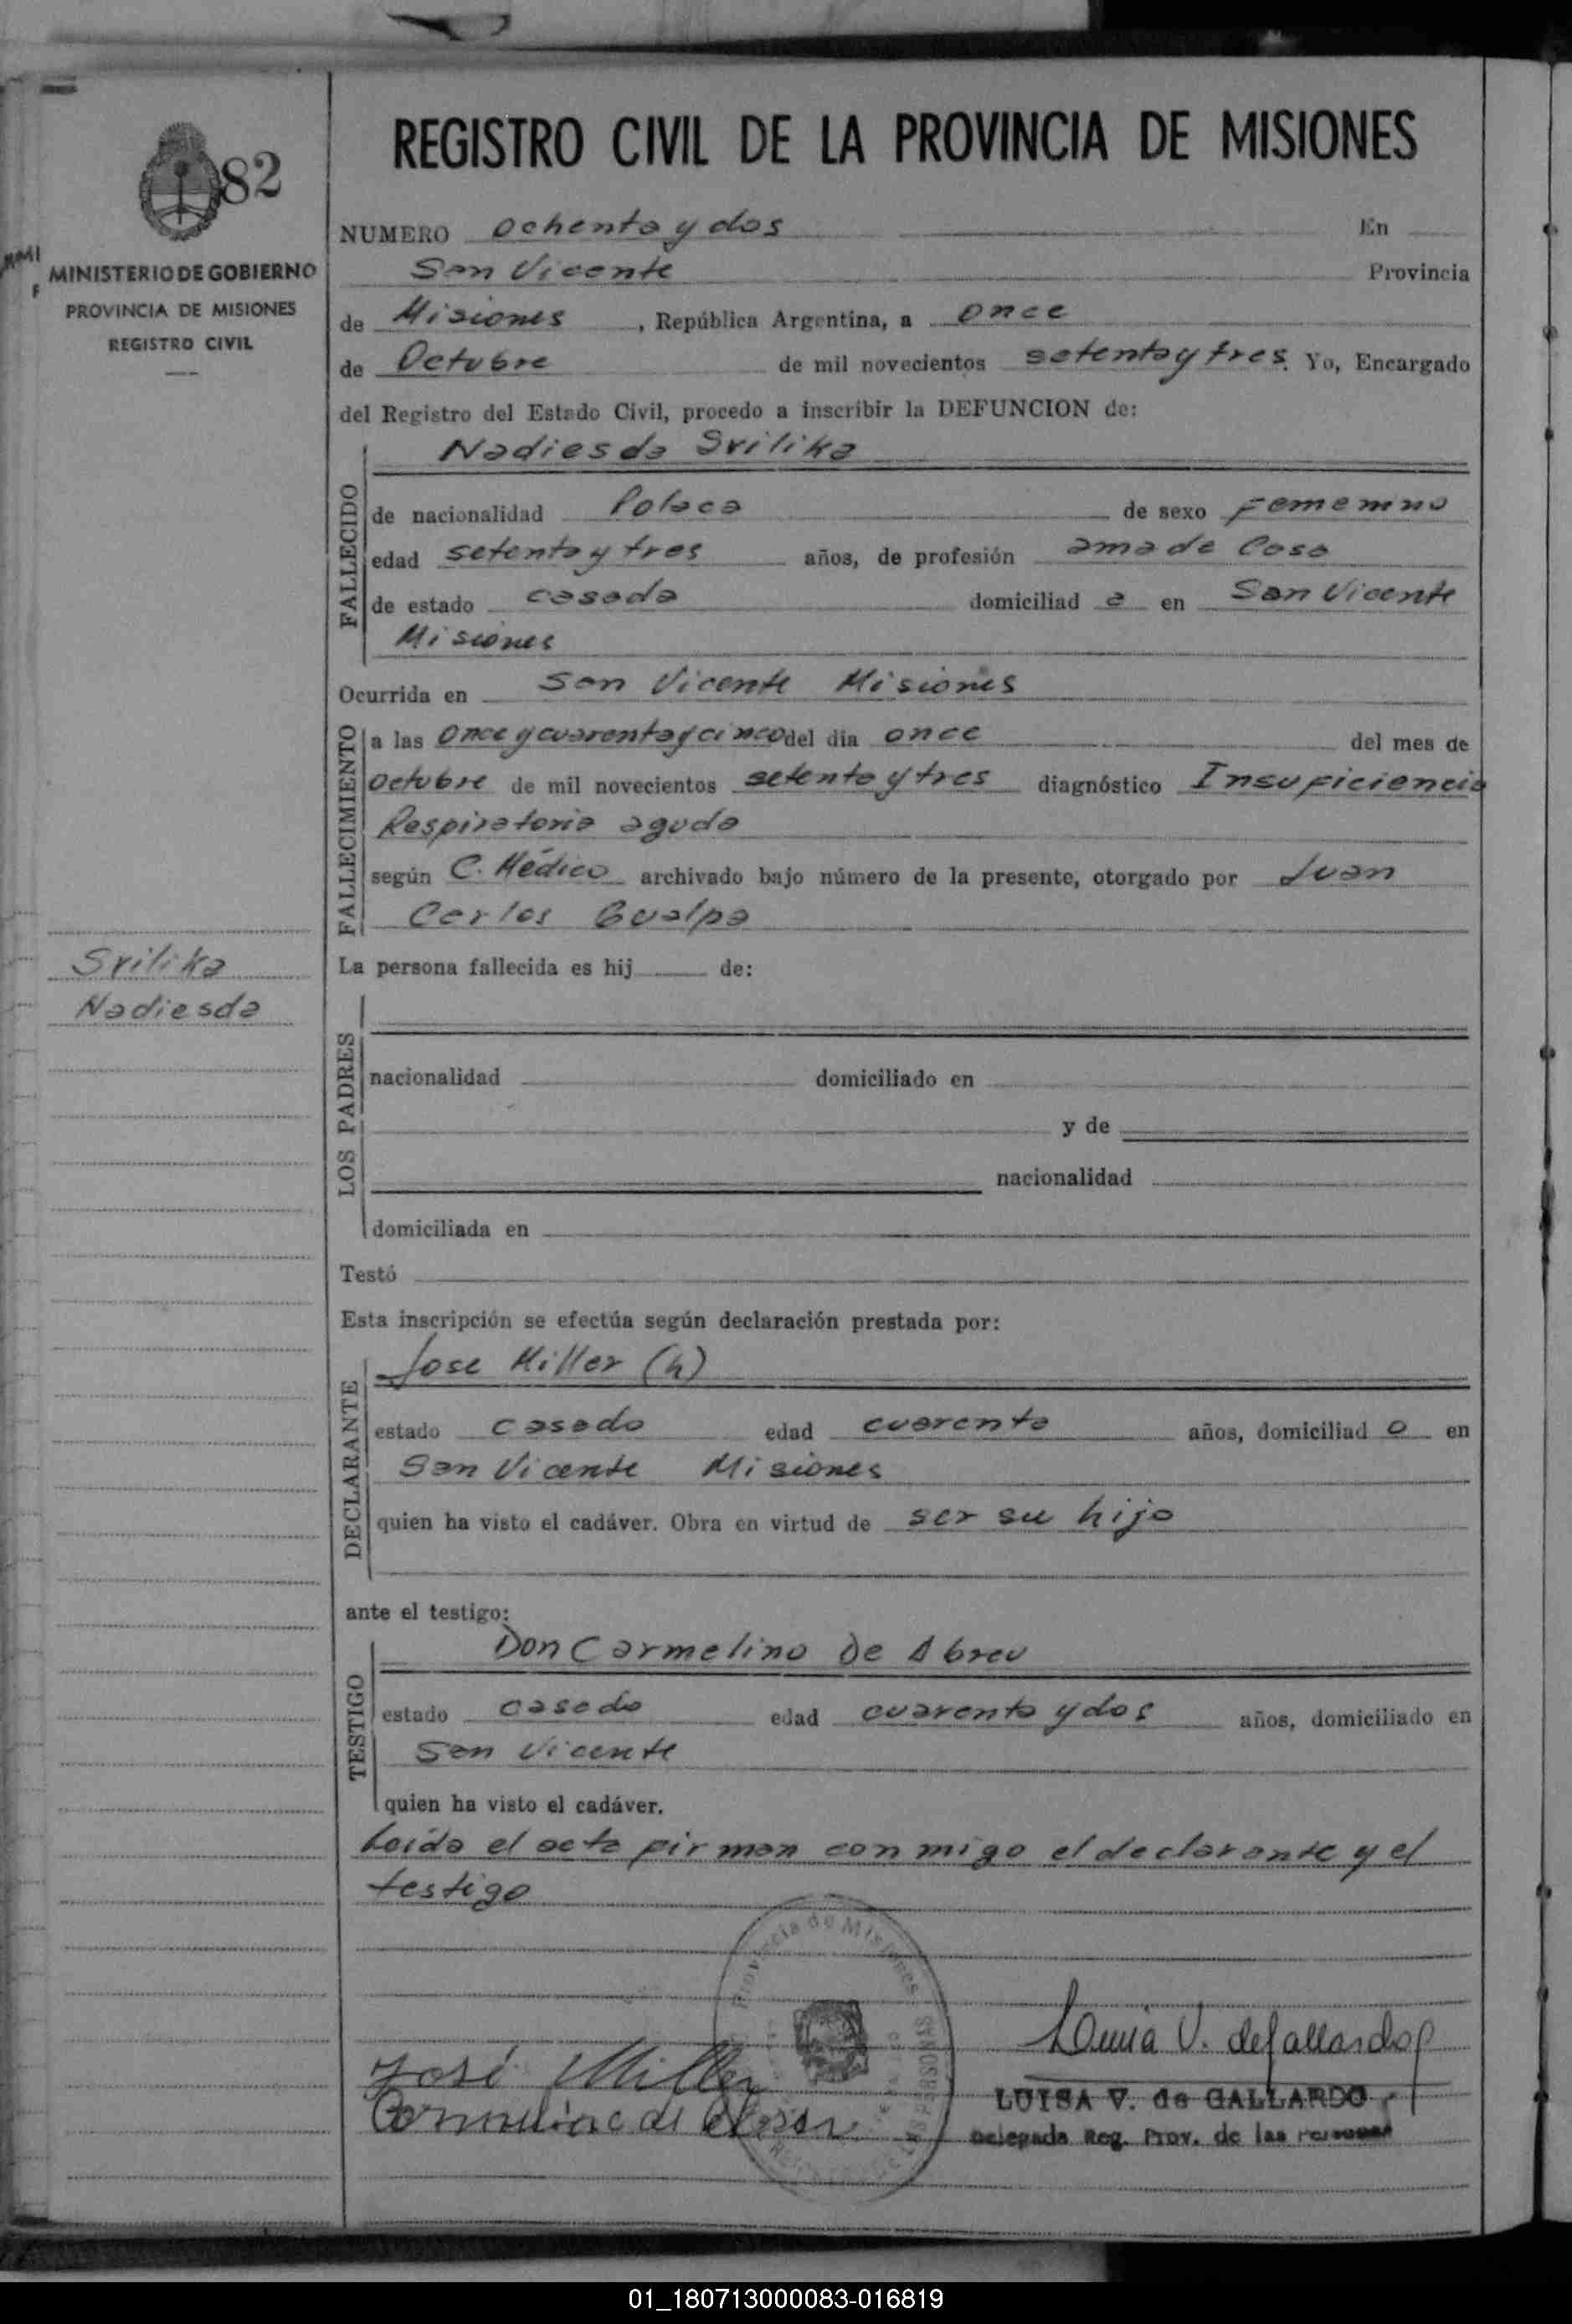 REGISTRO CIVIL DE LA PROVINCIA DE MISIONES
82
MINISTERIO DE GOBIERNO
PROVINCIA DE MISIONES
REGISTRO CIVIL
NUMERO Ochenta y dos En
San Vicente Provincia
de Misiones, República Argentina, a once
de Octubre de mil novecientos setenta y tres. Yo, Encargado
del Registro del Estado Civil, procedo a inscribir la DEFUNCION de:
Nadiesda Srilika
FALLECIDO
de nacionalidad Polaca de sexo Femenino
edad setenta y tres años, de profesión ama de Casa
de estado casada domiciliad a en San Vicente
Misiones
Ocurrida en San Vicente Misiones
FALLECIMIENTO
a las Once y cuarenta y cinco del día once del mes de
Octubre de mil novecientos setenta y tres diagnóstico Insuficiencia
Respiratoria aguda
según C. Médico archivado bajo número de la presente, otorgado por Juan
Carlos Gualpa
Srilika
Nadiesda
La persona fallecida es hij de:
LOS PADRES
nacionalidad domiciliado en
y de
nacionalidad
domiciliada en
Testó
Esta inscripción se efectúa según declaración prestada por:
DECLARANTE
Jose Miller (h)
estado casado edad cuarenta años, domiciliad o en
San Vicente Misiones
quien ha visto el cadáver. Obra en virtud de ser su hijo
ante el testigo:
TESTIGO
Don Carmelino De Abreu
estado casado edad cuarenta y dos años, domiciliado en
San Vicente
quien ha visto el cadáver.
Leida el acta firman conmigo el declarante y el
testigo
Provincia de Misiones
LAS PERSONAS
José Miller
Luisa V. de Gallardo
LUISA V. de GALLARDO
Delegada Reg. Prov. de las Personas
01_180713000083-016819